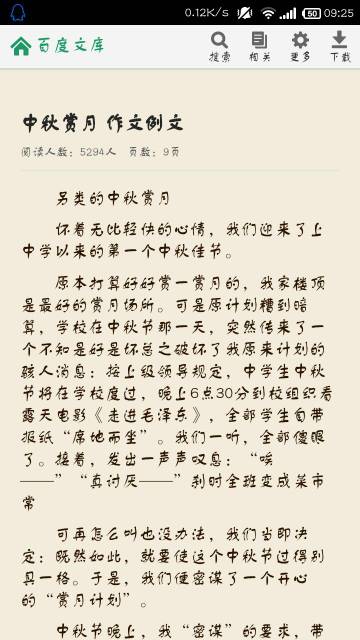 0.12K/s 50 09:25
百度文库 搜索 相关 更多 下载
中秋赏月 作文例文
阅读人数：5294人 页数：9页
另类的中秋赏月
怀着无比轻快的心情，我们迎来了上
中学以来的第一个中秋佳节。
原本打算好好赏一赏月的，我家楼顶
是最好的赏月场所。可是原计划糟到暗
算，学校在中秋节那一天，突然传来了一
个不知是好是坏总之破坏了我原来计划的
骇人消息：按上级领导规定，中学生中秋
节将在学校度过，晚上6点30分到校组织看
露天电影《走进毛泽东》，全部学生自带
报纸“席地而坐”。我们一听，全部傻眼
了。接着，发出一声声叹息：“唉
——”“真讨厌——”刹时全班变成菜市
常
可再怎么叫也没办法，我们当即决
定：既然如此，就要使这个中秋节过得别
具一格。于是，我们便密谋了一个开心
的“赏月计划”。
中秋节晚上，我“密谋”的要求，带